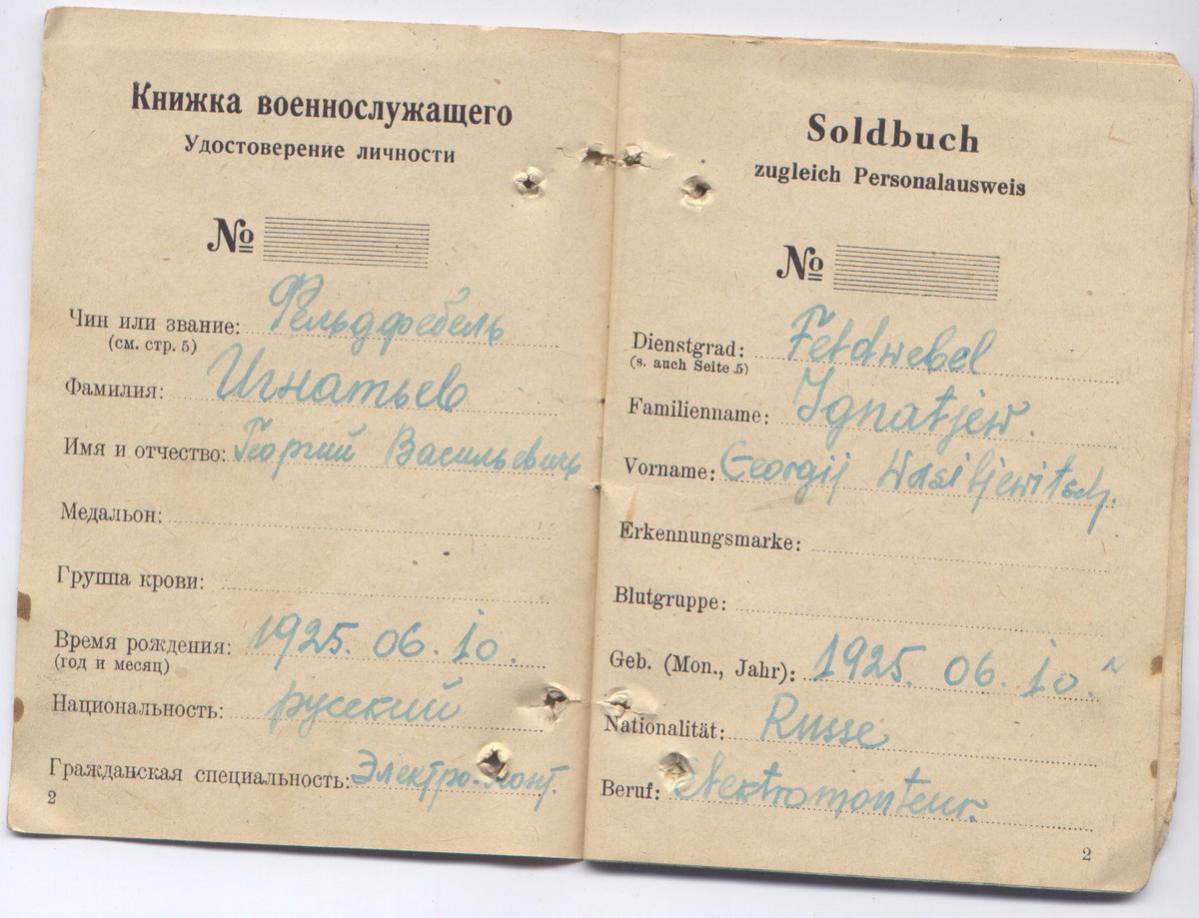 Книжка военнослужащего
Удостоверение личности
№
Чин или звание: Фельдфебель
(см. стр. 5)
Фамилия: Игнатьев
Имя и отчество: Георгий Васильевичь
Медальон:
Группа крови:
Время рождения: 1925. 06. 10.
(год и месяц)
Национальность: русский
Гражданская специальность: Электро-монт.
2
Soldbuch
zugleich Personalausweis
№
Dienstgrad: Feldwebel
(s. auch Seite 5)
Familienname: Ignatjew.
Vorname: Georgij Wasiljewitsch.
Erkennungsmarke:
Blutgruppe:
Geb. (Mon., Jahr): 1925. 06. 10."
Nationalität: Russe
Beruf: Elektromonteur.
2